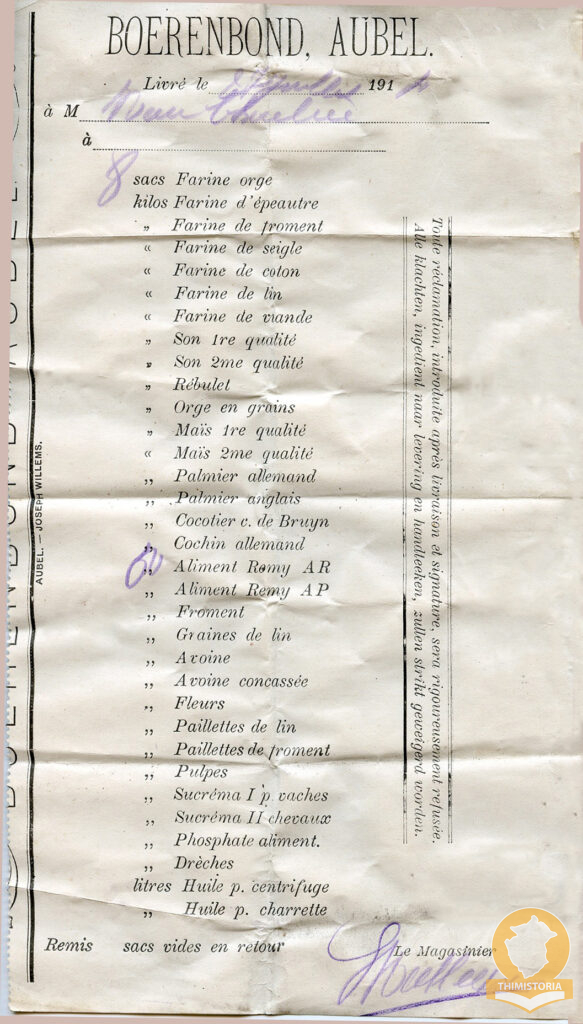 BOERENBOND, AUBEL.
Livré le juillet 191
à M
à
8 sacs Farine orge
kilos Farine d'épeautre
„ Farine de froment
« Farine de seigle
« Farine de coton
« Farine de lin
« Farine de viande
„ Son 1re qualité
„ Son 2me qualité
„ Rébulet
„ Orge en grains
„ Maïs 1re qualité
« Maïs 2me qualité
,, Palmier allemand
,, Palmier anglais
,, Cocotier c. de Bruyn
,, Cochin allemand
,, Aliment Remy AR
,, Aliment Remy AP
,, Froment
,, Graines de lin
,, Avoine
,, Avoine concassée
,, Fleurs
,, Paillettes de lin
,, Paillettes de froment
,, Pulpes
,, Sucréma I p. vaches
,, Sucréma II chevaux
,, Phosphate aliment.
,, Drèches
litres Huile p. centrifuge
,, Huile p. charrette
Remis sacs vides en retour
Le Magasinier
Toute réclamation, introduite après livraison et signature, sera rigoureusement refusée.
Alle klachten, ingedient naar levering en handteeken, zullen strikt geweigerd worden.
AUBEL. — JOSEPH WILLEMS.
THIMISTORIA